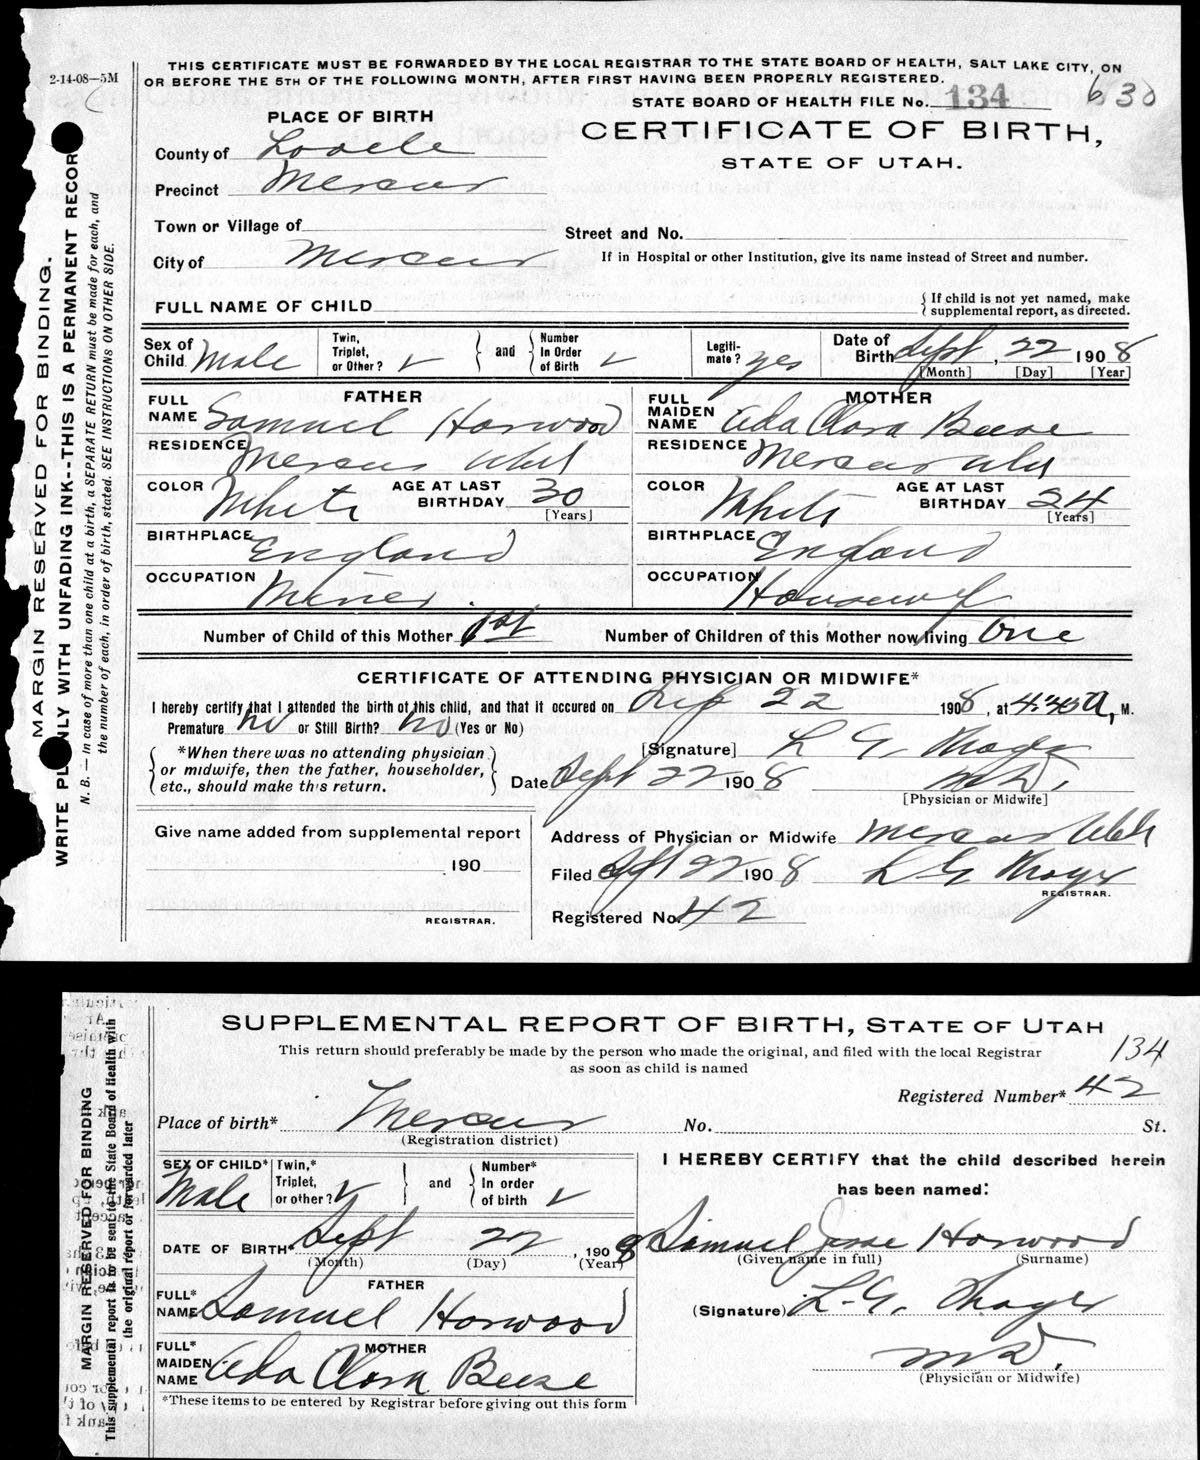 2-14-08—5M
THIS CERTIFICATE MUST BE FORWARDED BY THE LOCAL REGISTRAR TO THE STATE BOARD OF HEALTH, SALT LAKE CITY, ON
OR BEFORE THE 5TH OF THE FOLLOWING MONTH, AFTER FIRST HAVING BEEN PROPERLY REGISTERED.
STATE BOARD OF HEALTH FILE No. 134 630
PLACE OF BIRTH
CERTIFICATE OF BIRTH,
STATE OF UTAH.
County of Tooele
Precinct Mercur
Town or Village of
Street and No.
City of Mercur
If in Hospital or other Institution, give its name instead of Street and number.
FULL NAME OF CHILD
{ If child is not yet named, make
supplemental report, as directed.
Sex of Child Male
Twin, Triplet, or Other? and Number In Order of Birth
Legiti-mate? yes
Date of Birth Sept, 22 1908
[Month] [Day] [Year]
FATHER
MOTHER
FULL NAME Samuel Horwood
FULL MAIDEN NAME Ada Clara Beese
RESIDENCE Mercur Utah
RESIDENCE Mercur Utah
COLOR White AGE AT LAST BIRTHDAY 30 [Years]
COLOR White AGE AT LAST BIRTHDAY 24 [Years]
BIRTHPLACE England
BIRTHPLACE England
OCCUPATION Miner.
OCCUPATION Housewf
Number of Child of this Mother 1st Number of Children of this Mother now living One
CERTIFICATE OF ATTENDING PHYSICIAN OR MIDWIFE*
I hereby certify that I attended the birth of this child, and that it occured on Sep 22 1908, at 4:30 A, M.
Premature no or Still Birth? no (Yes or No)
*When there was no attending physician
or midwife, then the father, householder,
etc., should make this return.
[Signature] L G,
Date Sept 22 1908 M D.
[Physician or Midwife]
Give name added from supplemental report
190
REGISTRAR.
Address of Physician or Midwife Mercur Utah
Filed Sept 22 1908 L G
REGISTRAR.
Registered No. 42
MARGIN RESERVED FOR BINDING.
WRITE PLAINLY WITH UNFADING INK--THIS IS A PERMANENT RECORD
N. B. — In case of more than one child at a birth, a SEPARATE RETURN must be made for each, and
the number of each, in order of birth, stated. SEE INSTRUCTIONS ON OTHER SIDE.
SUPPLEMENTAL REPORT OF BIRTH, STATE OF UTAH
This return should preferably be made by the person who made the original, and filed with the local Registrar
as soon as child is named
134
Registered Number* 42
Place of birth* Mercur No. St.
(Registration district)
SEX OF CHILD* Male
Twin,* Triplet, or other? and Number* In order of birth
I HEREBY CERTIFY that the child described herein
has been named:
DATE OF BIRTH* Sept 22, 1908
(Month) (Day) (Year)
Samuel Jesse Horwood
(Given name in full) (Surname)
FATHER
FULL* NAME Samuel Horwood
(Signature) L. G.
MOTHER
FULL* MAIDEN NAME Ada Clara Beese
M D.
(Physician or Midwife)
*These items to be entered by Registrar before giving out this form
MARGIN RESERVED FOR BINDING
This supplemental report is to be sent to the State Board of Health with
the original report or forwarded later